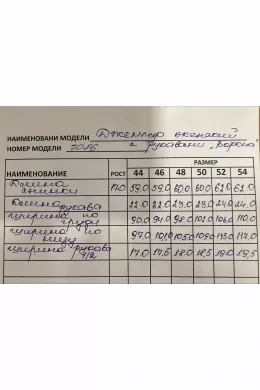 НАИМЕНОВАНИ МОДЕЛИ Джемпер женский
НОМЕР МОДЕЛИ 2086 с рукавами "ворона"
РАЗМЕР
НАИМЕНОВАНИЕ РОСТ 44 46 48 50 52 54
Длина спинки 170 59.0 59.0 60.0 60.0 62.0 62.0
Длина рукава 22.0 22.0 23.0 23.0 24.0 24.0
Ширина по груди 90.0 94.0 98.0 102.0 106.0 110.0
Ширина по низу 97.0 101.0 105.0 109.0 113.0 117.0
Ширина рукава 1/2 17.0 17.5 18.0 18.5 19.0 19.5